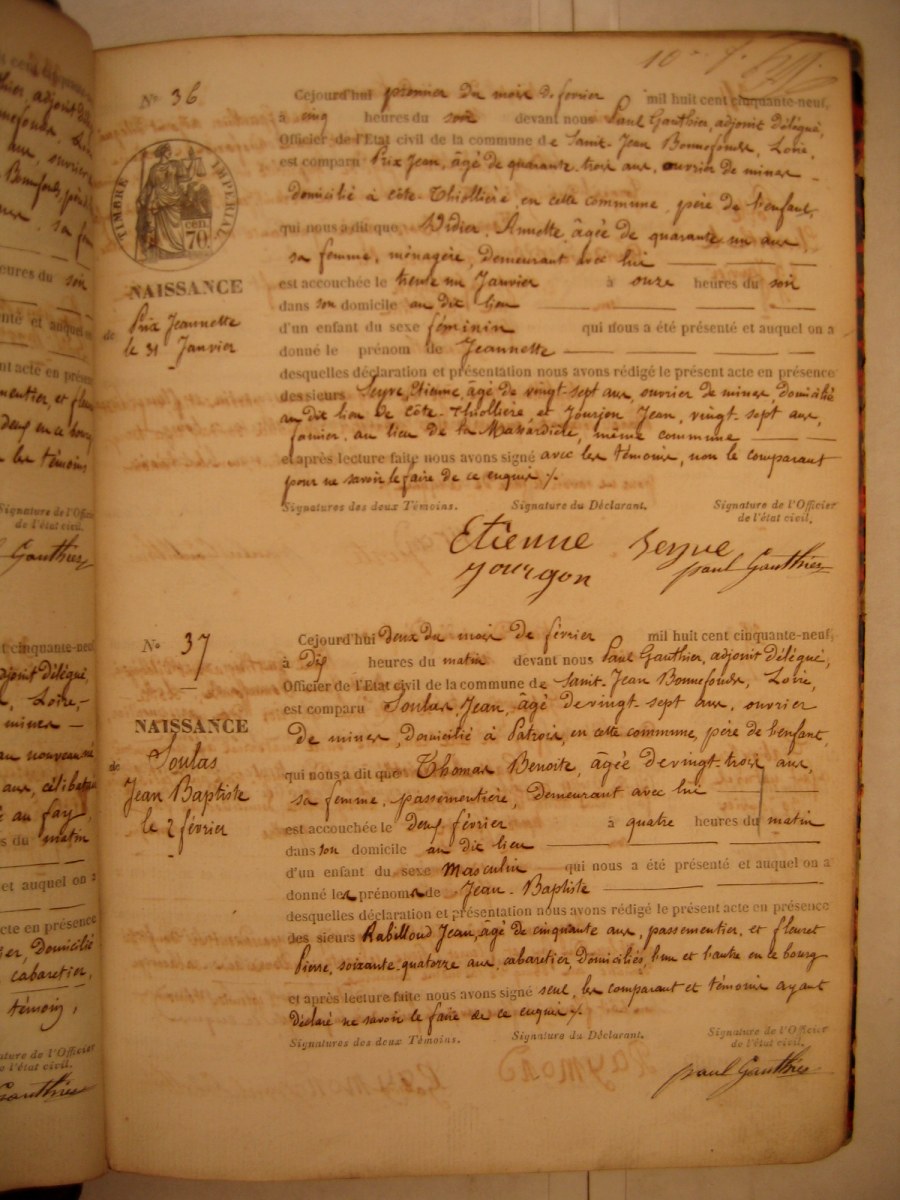 10e f.
No 36
TIMBRE IMPERIAL
CEN. 70
NAISSANCE
de Prix Jeannette
le 31 Janvier
Cejourd'hui premier du mois de fevrier mil huit cent cinquante-neuf,
à cinq heures du soir devant nous Paul Gauthier, adjoint délégué,
Officier de l'Etat civil de la commune de Saint-Jean Bonnefonds, Loire,
est comparu Prix Jean, âgé de quarante trois ans, ouvrier de mines
domicilié à côte-Thiollière, en cette commune, père de l'enfant,
qui nous a dit que Didier, Annette, âgée de quarante un ans
sa femme, ménagère, demeurant avec lui
est accouchée le trente un Janvier à onze heures du soir
dans son domicile au dit lieu
d'un enfant du sexe féminin qui nous a été présenté et auquel on a
donné le prénom de Jeannette
desquelles déclaration et présentation nous avons rédigé le présent acte en présence
des sieurs Seyve, Etienne, âgé de vingt-sept ans, ouvrier de mines, domicilié
au dit lieu de Côte-Thiollière et Jourjon Jean, vingt-sept ans,
fermier, au lieu de la Massardière, même commune
et après lecture faite nous avons signé avec les témoins, non le comparant
pour ne savoir le faire de ce enquis ./.
Signatures des deux Témoins. Signature du Déclarant. Signature de l'Officier
de l'état civil.
Etienne Seyve
jourgon paul Gauthier
No 37
NAISSANCE
de Soulas
Jean Baptiste
le 2 février
Cejourd'hui deux du mois de février mil huit cent cinquante-neuf,
à Dix heures du matin devant nous Paul Gauthier, adjoint délégué,
Officier de l'Etat civil de la commune de Saint-Jean Bonnefonds, Loire,
est comparu Soulas, Jean, âgé de vingt-sept ans, ouvrier
de mines, domicilié à Patroa, en cette commune, père de l'enfant,
qui nous a dit que Thomas Benoite, âgée de vingt-trois ans,
sa femme, passementière, demeurant avec lui
est accouchée le deux février à quatre heures du matin
dans son domicile au dit lieu
d'un enfant du sexe masculin qui nous a été présenté et auquel on a
donné les prénoms de Jean-Baptiste
desquelles déclaration et présentation nous avons rédigé le présent acte en présence
des sieurs Rabilloud Jean, âgé de cinquante ans, passementier, et fleuret
Pierre, soixante-quatorze ans, cabaretier, domiciliés, l'un et l'autre en le bourg
et après lecture faite nous avons signé seul, les comparant et témoins ayant
déclaré ne savoir le faire de ce enquis ./.
Signatures des deux Témoins. Signature du Déclarant. Signature de l'Officier
de l'état civil.
paul Gauthier